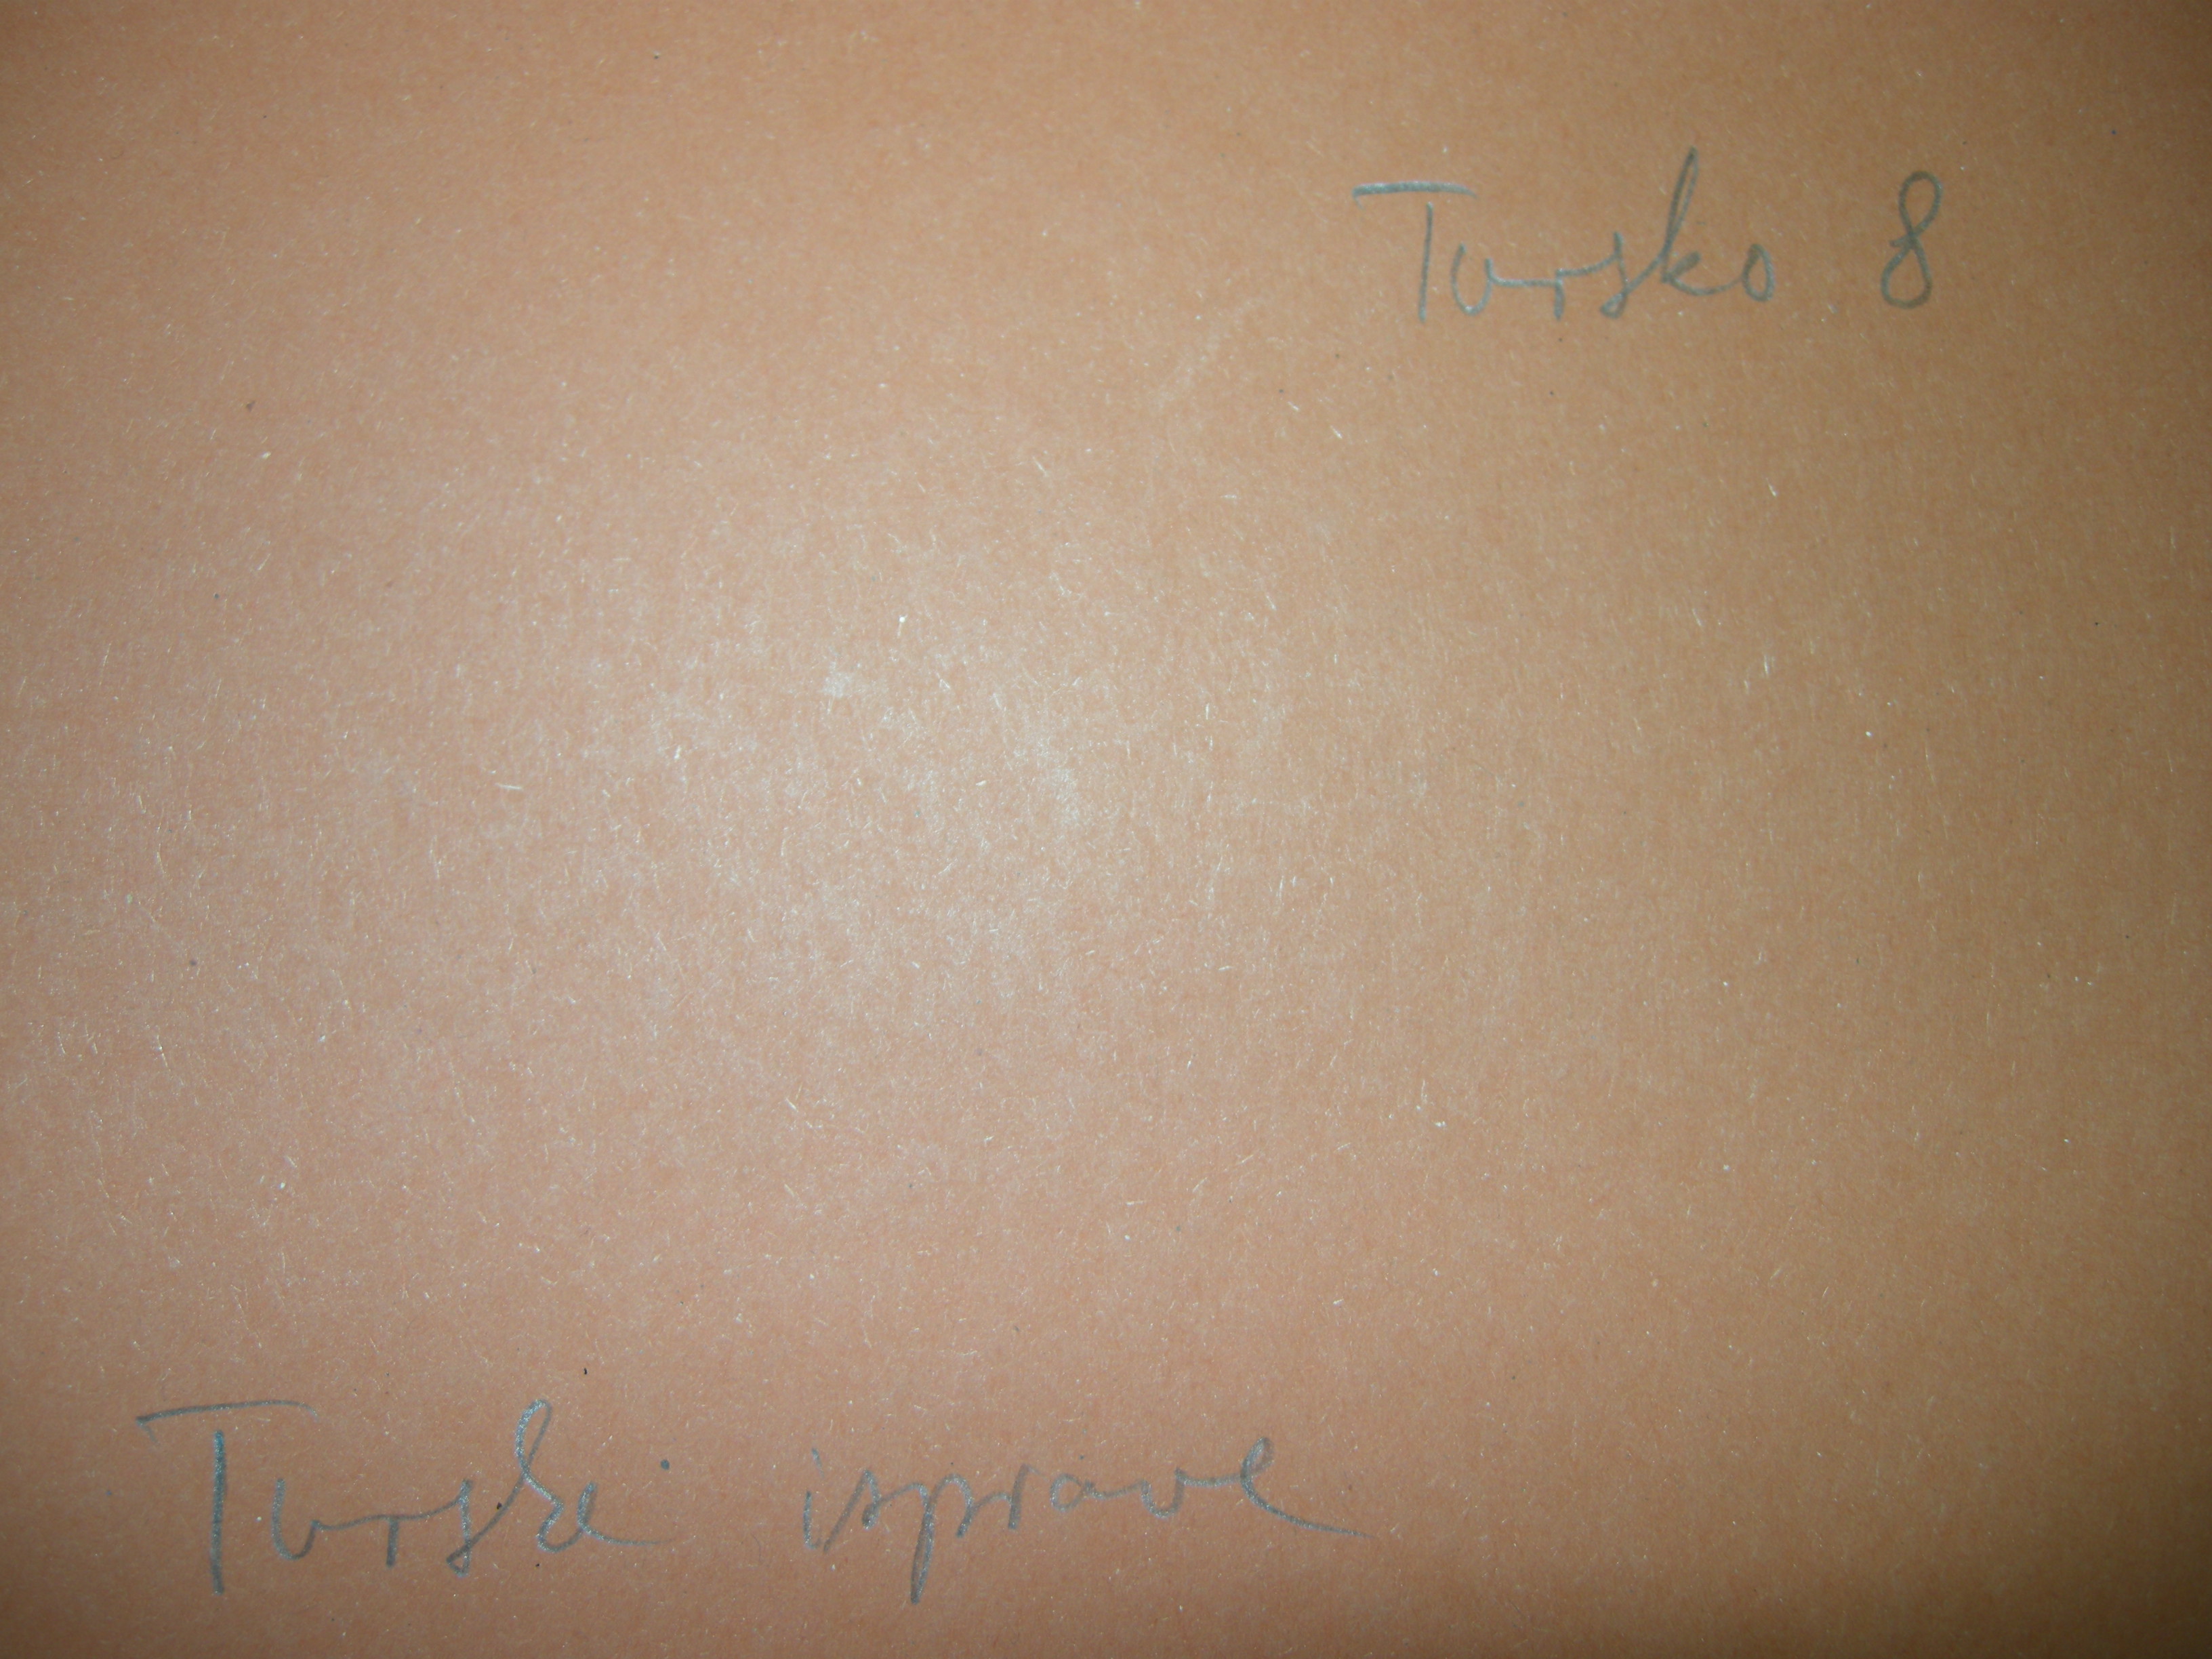 Tursko 8
Turske isprave